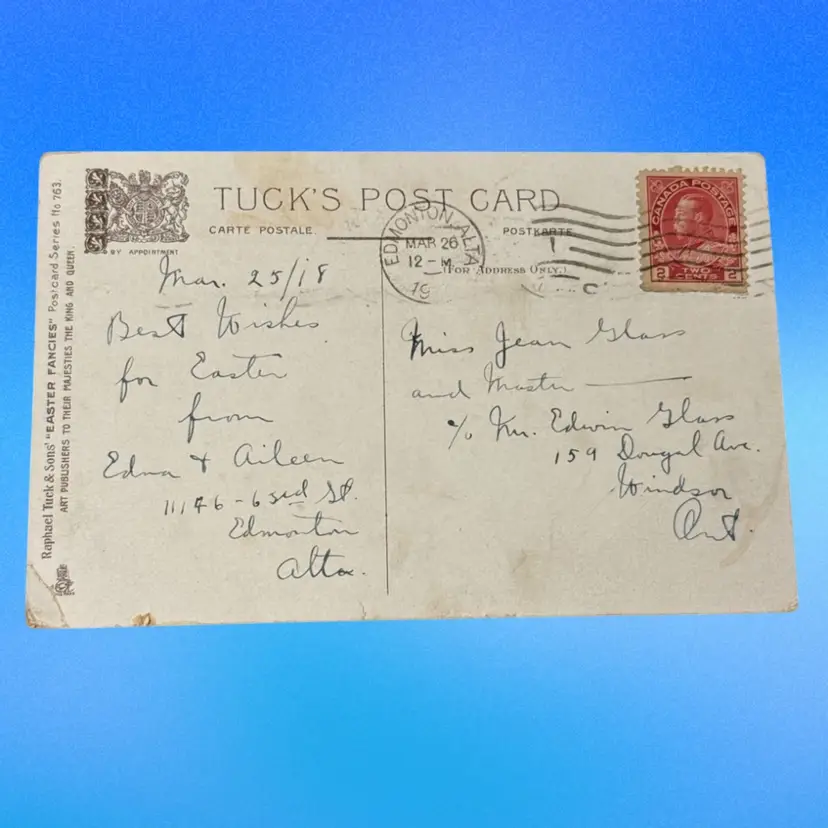 TUCK'S POST CARD
CARTE POSTALE.
POSTKARTE
(FOR ADDRESS ONLY.)
BY APPOINTMENT
Raphael Tuck & Sons' "EASTER FANCIES" Postcard Series No 763.
ART PUBLISHERS TO THEIR MAJESTIES THE KING AND QUEEN.
EDMONTON, ALTA
MAR 26
12 - M
19
CANADA POSTAGE
2 TWO CENTS 2
Mar. 25/18
Best Wishes
for Easter
from
Edna + Aileen
11146 - 63rd St.
Edmonton
Alta.
Miss Jean Glass
and Master
c/o Mr. Edwin Glass
159 Dougal Ave.
Windsor
Ont.